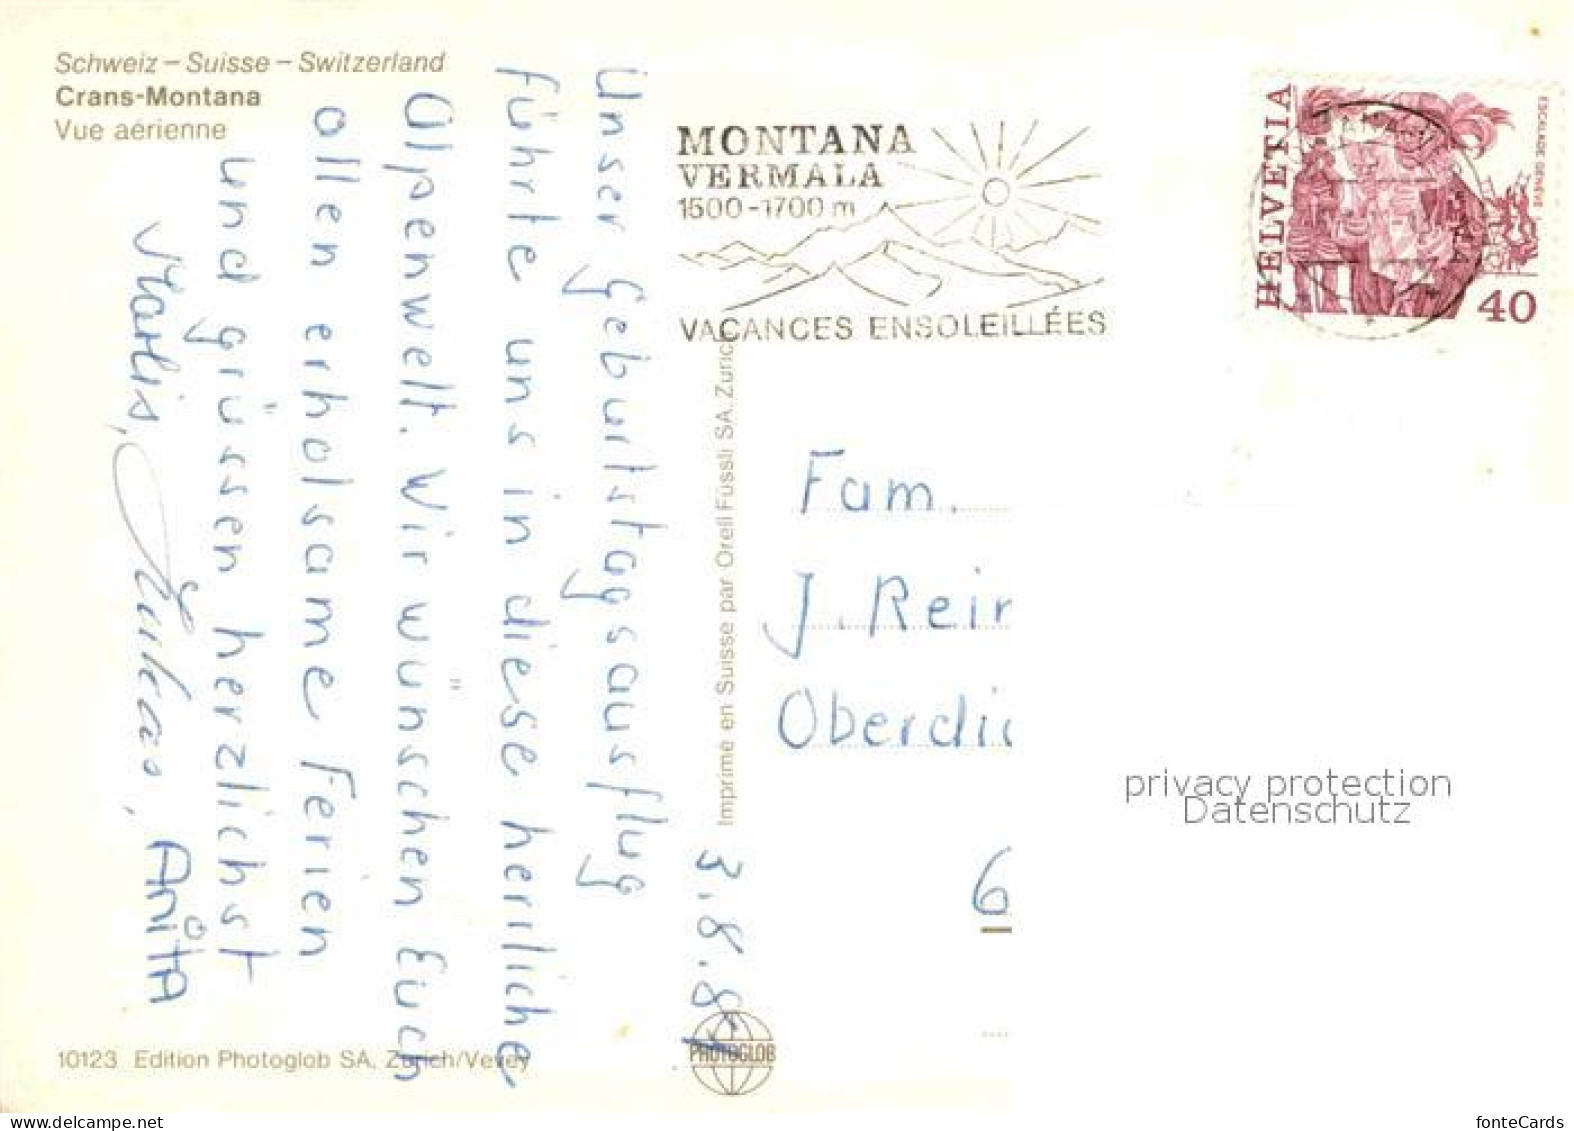 Schweiz – Suisse – Switzerland
Crans-Montana
Vue aérienne
Unser Geburtstagsausflug
führte uns in diese herrliche
Alpenwelt. Wir wünschen Euch
allen erholsame Ferien
und grüssen herzlichst
Marlis, Lukas, Anita
3.8.81
10123 Edition Photoglob SA, Zürich/Vevey
Imprimé en Suisse par Orell Füssli SA, Zurich
PHOTOGLOB
MONTANA
VERMALA
1500-1700 m
VACANCES ENSOLEILLÉES
HELVETIA
ESCALADE GENÈVE
40
Fam.
J. Rein
Oberdi
6
privacy protection
Datenschutz
fonteCards